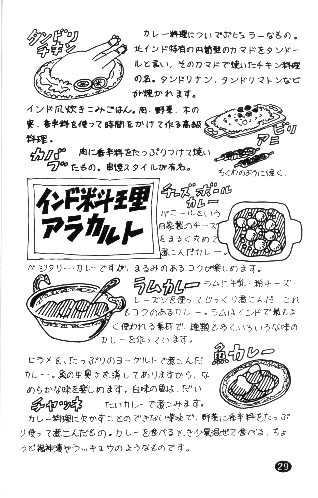 タンドリ
チキン
カレー料理についでポピュラーなもの。
北インド特有の円筒型のカマドをタンドー
ルと言い、そのカマドで焼いたチキン料理
の名。タンドリナン、タンドリマトンなど
が焼かれます。
インド風炊きこみごはん。肉・野菜・木の
実・香辛料を使って時間をかけて作る高級
料理。
ビリ
アニ
カバ
ブ
肉に香辛料をたっぷりつけて焼い
たもの。串焼スタイルが有名。
ちくわのように焼く。
インド料理
アラカルト
チーズボール
カレー
パニールという
自家製のチーズ
をまるくかめて
煮こんだカレー。
ベジタリーカレーですが、まるみのあるコクが楽しめます。
ラムカレー
ラムに牛乳・粉チーズ・
レーズンを使ってじっくり煮こんだ、これ
もコクのあるカレー。ラムはインドで最もよ
く使われる素材で、種類も多くいろいろな味の
カレーを作っています。
魚カレー
ヒラメを、たっぷりのヨーグルトで煮こんだ
カレー。魚の生臭さを消してありますから、な
めらかな味を楽しめます。白味の魚は、だい
たいカレーで煮こみます。
チャツネ
カレー料理に欠かすことのできない薬味で、野菜に香辛料をたっぷ
り使って煮こんだもの。カレーを食べるとき少量混ぜて食べる、ちょ
うど福神漬やラッキョウのようなものです。
29